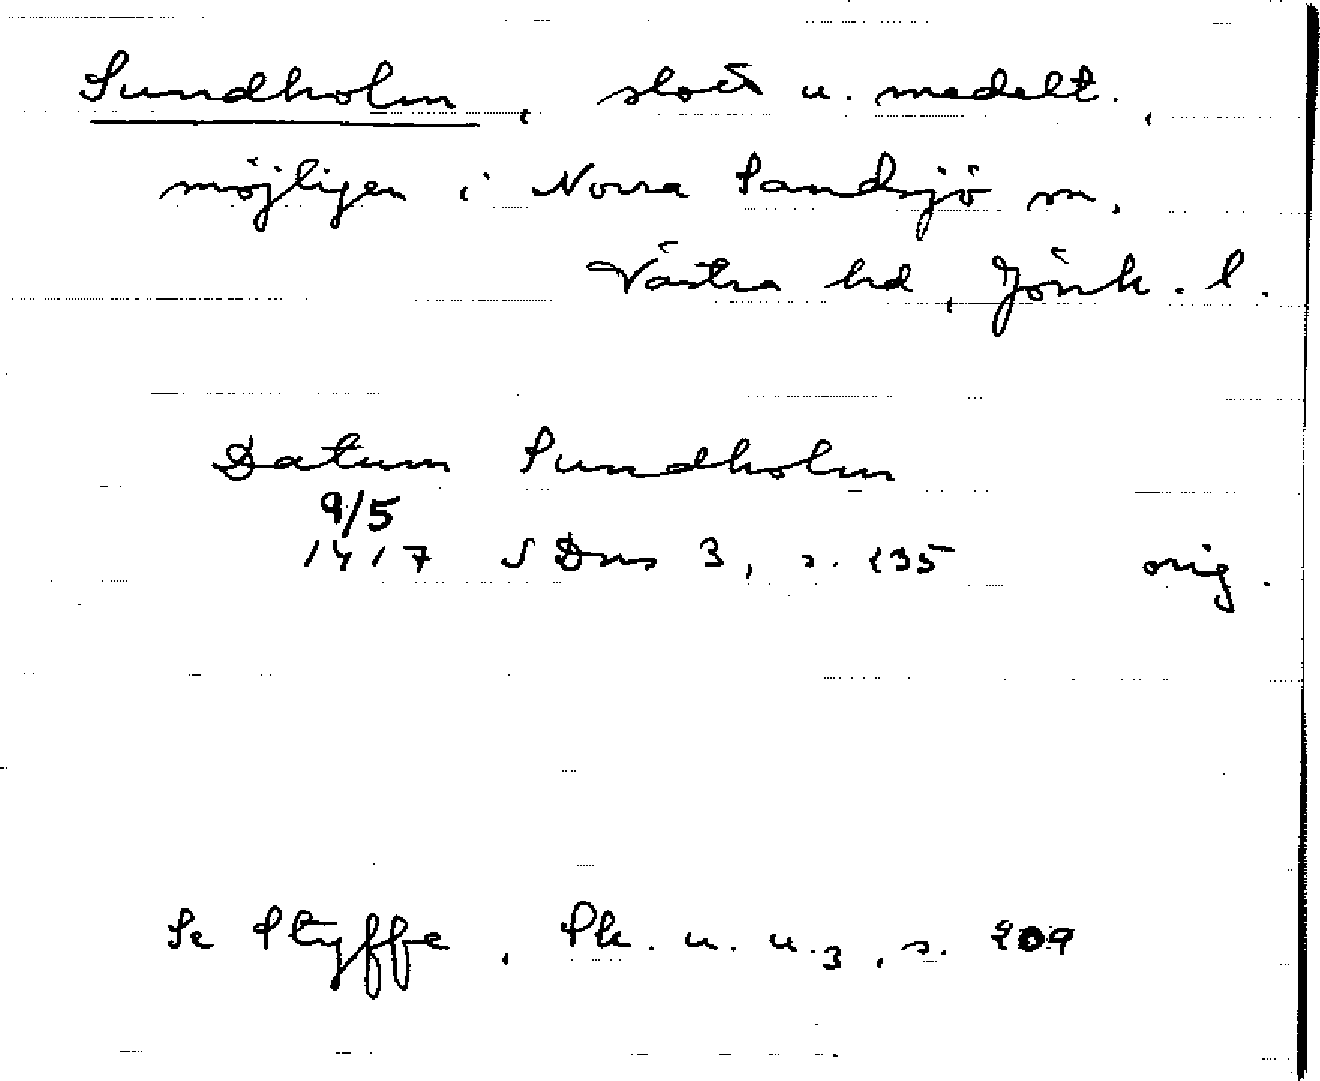 Sundholm, slott u. medelt.,
möjligen i Norra Sandsjö sn.
Västra hd, Jönk. l.
Datum Sundholm
9/5
1417 SDns 3, s. 135 orig.
Se Styffe, Sk. u. u.3, s. 209